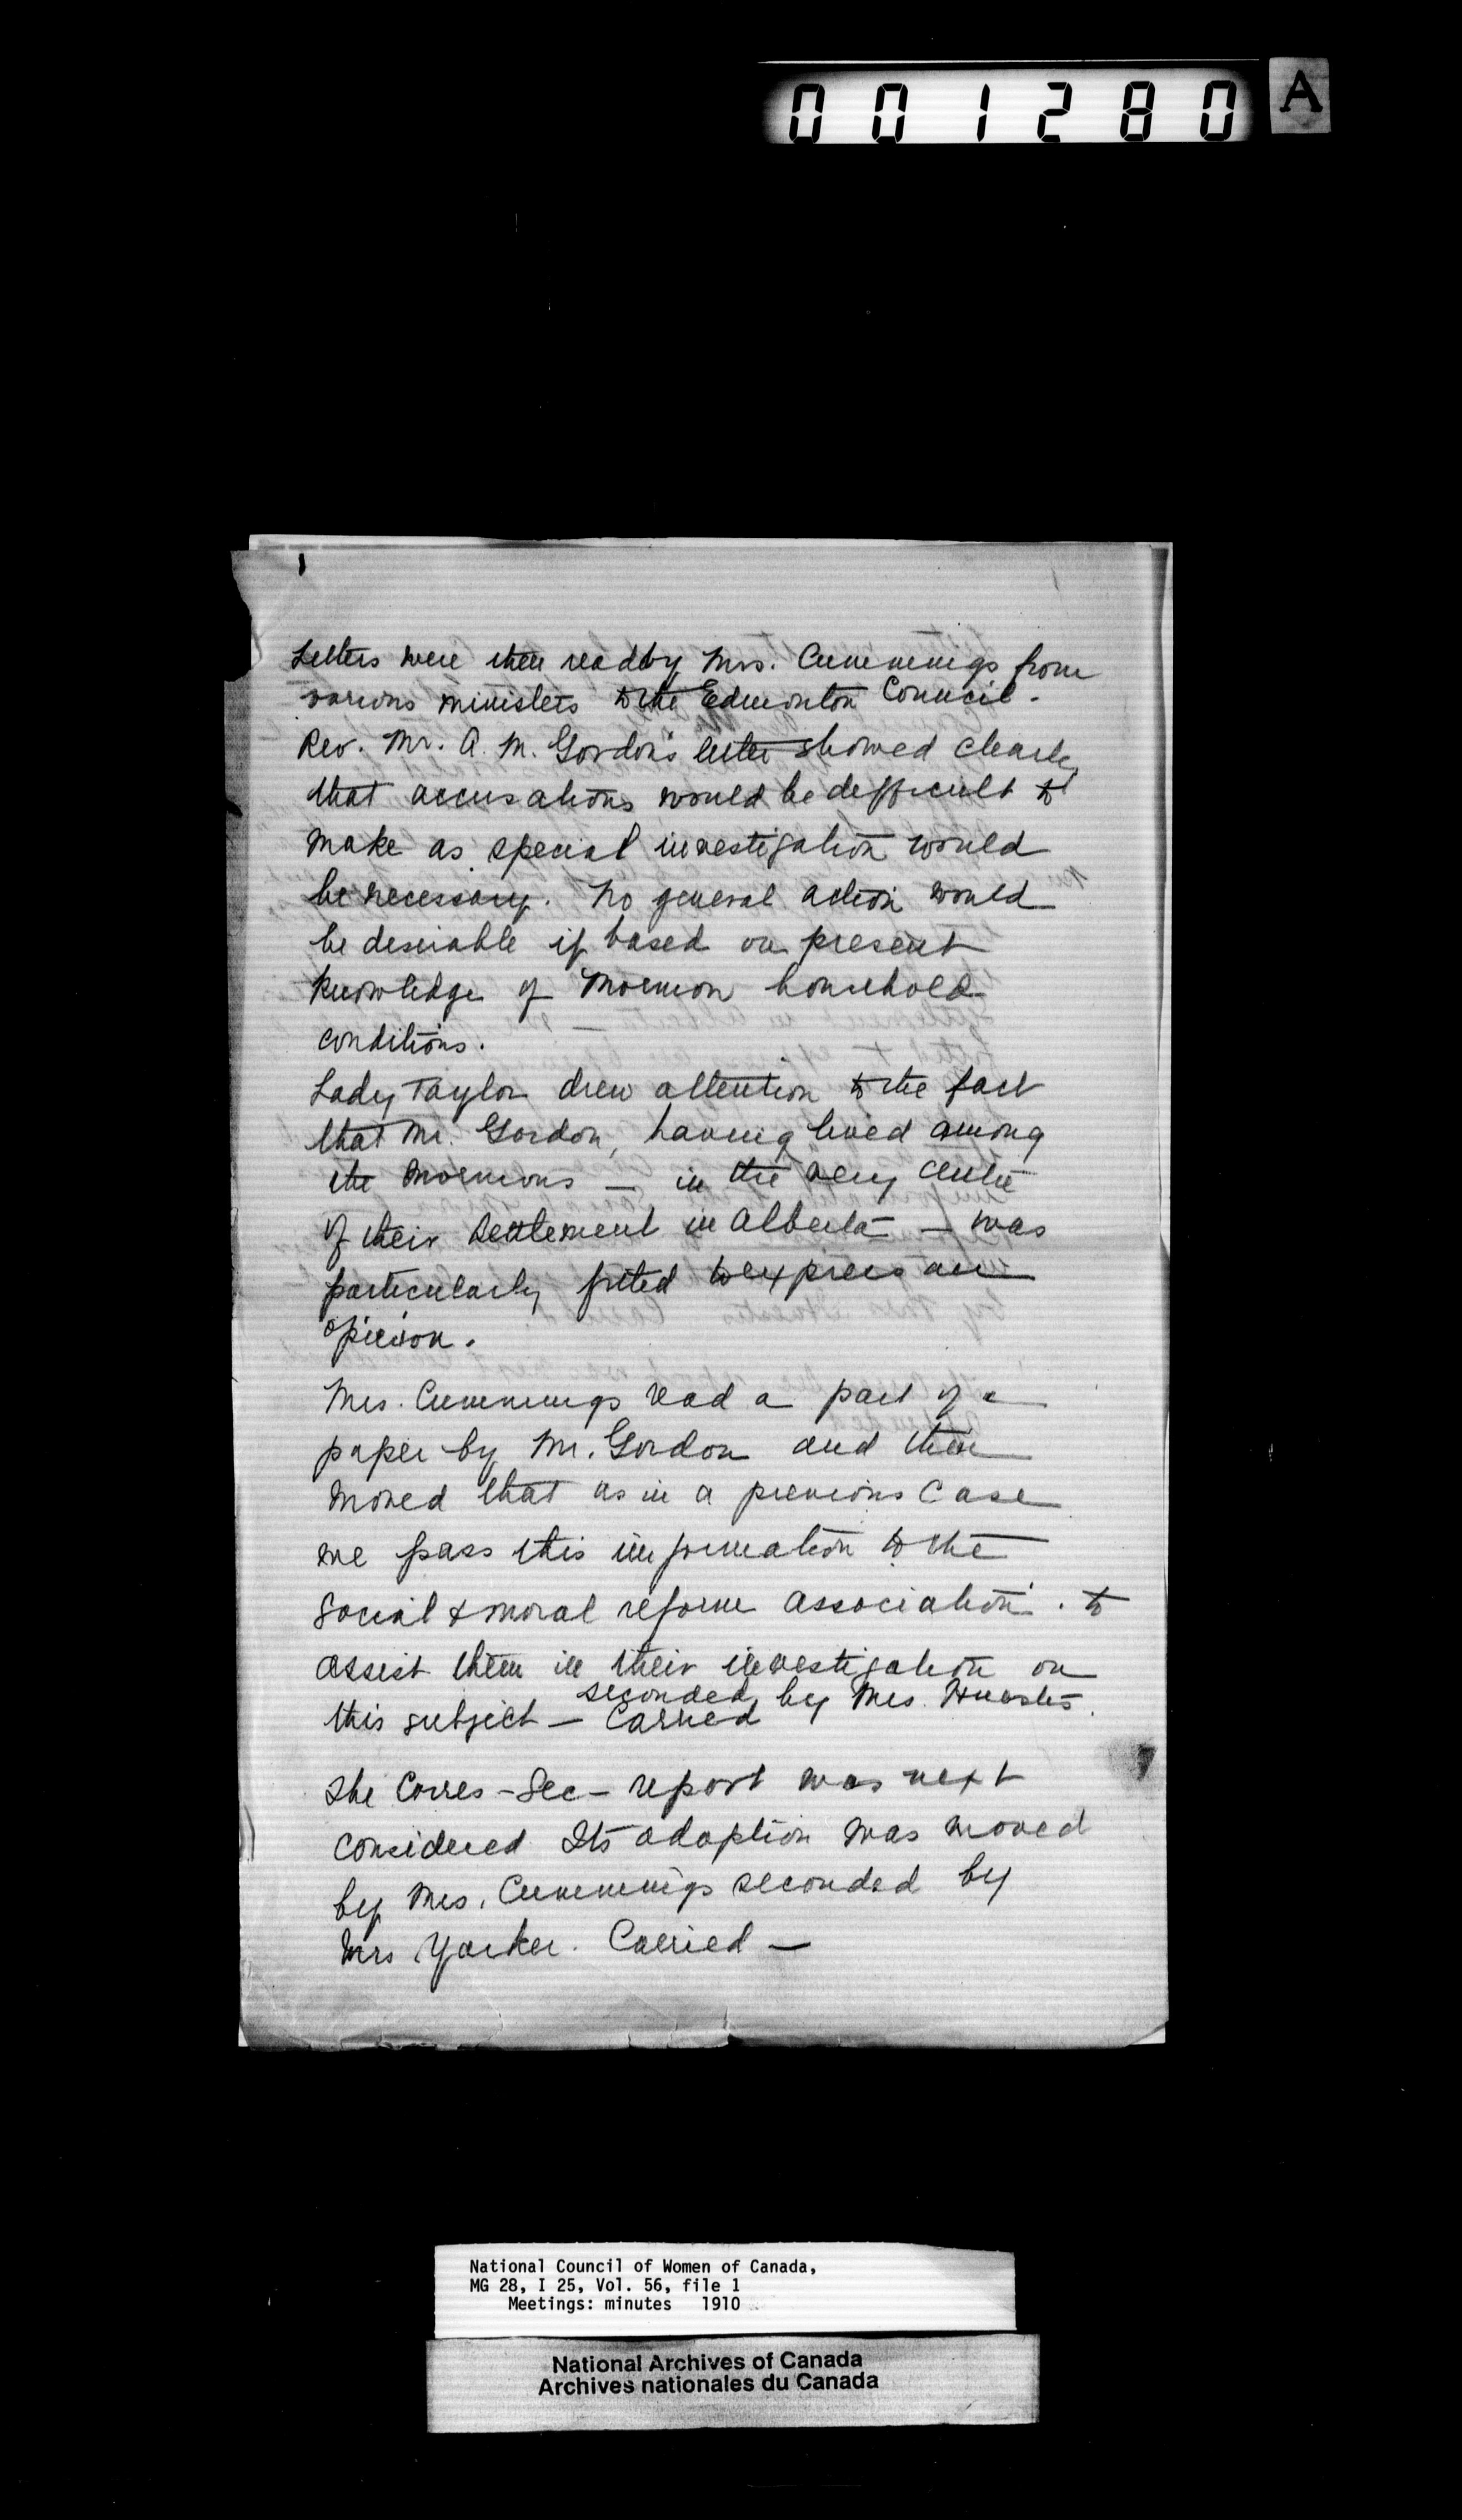 001280 A
Letters were then read by Mrs. Cummings from
various ministers to the Edmonton Council.
Rev. Mr. A. M. Gordon's letter showed clearly
that accusations would be difficult to
make as special investigation would
be necessary. No general action would
be desirable if based on present
knowledge of Mormon household
conditions.
Lady Taylor drew attention to the fact
that Mr. Gordon, having lived among
the Mormons — in the very centre
of their settlement in Alberta — was
particularly fitted to express an
opinion.
Mrs. Cummings read a part of a
paper by Mr. Gordon and then
moved that as in a previous case
we pass this information to the
Social & moral reform association. to
assist them in their investigation on
this subject — seconded by Mrs. Huestis.
Carried
The Corres-Sec- report was next
considered Its adoption was moved
by Mrs. Cummings seconded by
Mrs Yarker. Carried —
National Council of Women of Canada,
MG 28, I 25, Vol. 56, file 1
Meetings: minutes 1910
National Archives of Canada
Archives nationales du Canada